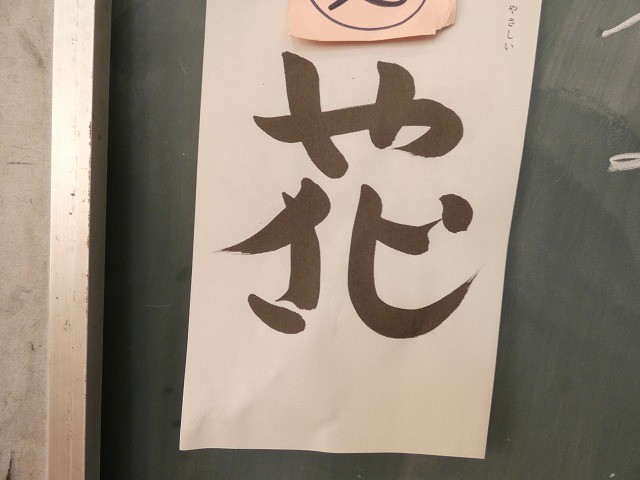 やさしい
花